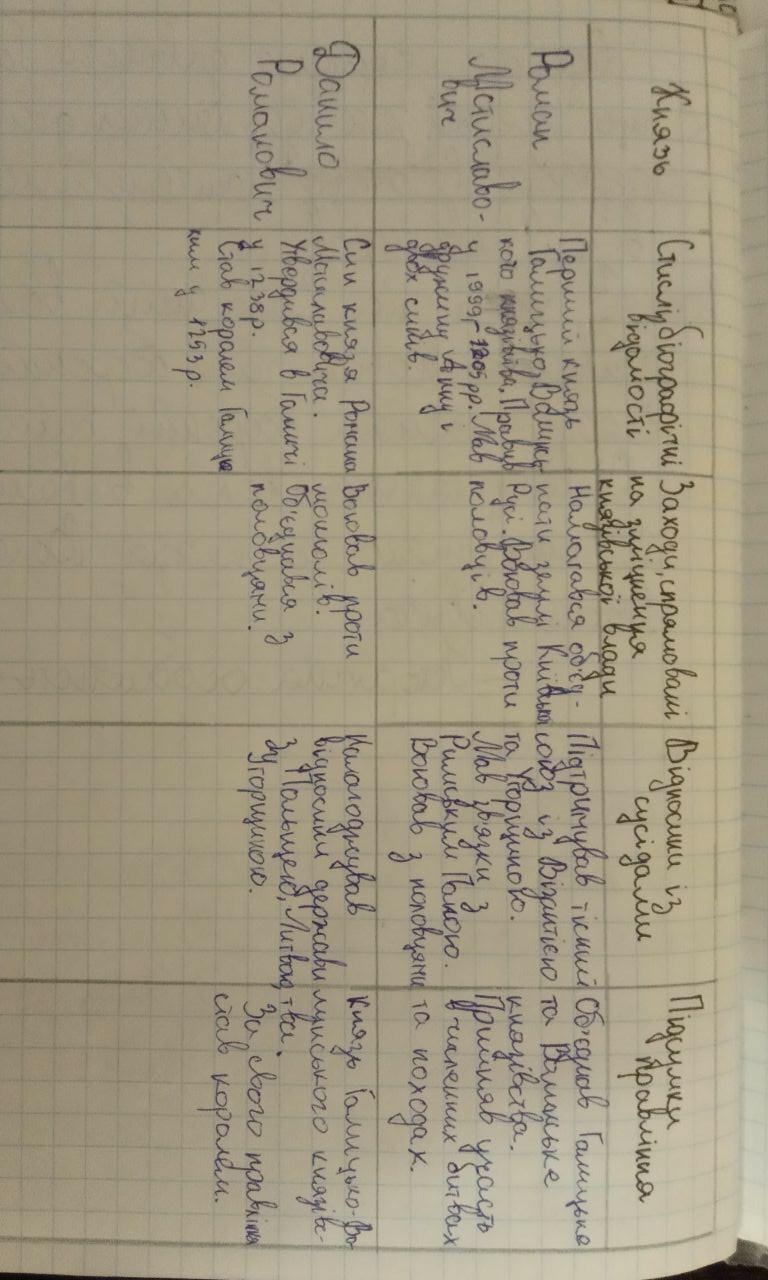 Князь
Стислі біографічні
відомості
Заходи, спрямовані
на зміцнення
князівської влади
Відносини із
сусідами
Підсумки
правління
Роман
Мстиславо-
вич
Перший князь
Галицько-Волинсь
кого князівства. Правив
у 1999, 1205 рр. Мав
дружину Анну і
двох синів.
Намагався об'єд-
нати землі Київської
Русі. Воював проти
половців.
Підтримував тісний
союз із Візантією
та Угорщиною.
Мав зв'язки з
Римським Папою.
Воював з половцями
Об'єднав Галицьке
та Волинське
князівства.
Прийняв участь
в численних битвах
та походах.
Данило
Романович
Син князя Романа
Мстиславовича.
Утвердився в Галичі
у 1238р.
Став королем Галиць
ким у 1253 р.
Воював проти
монголів.
Об'єднався з
половцями.
Налагоджував
відносини держави
з Польщею, Литвою,
Угорщиною.
Князь Галицько-Во
линського князівс-
тва.
За свого правління
став королем.